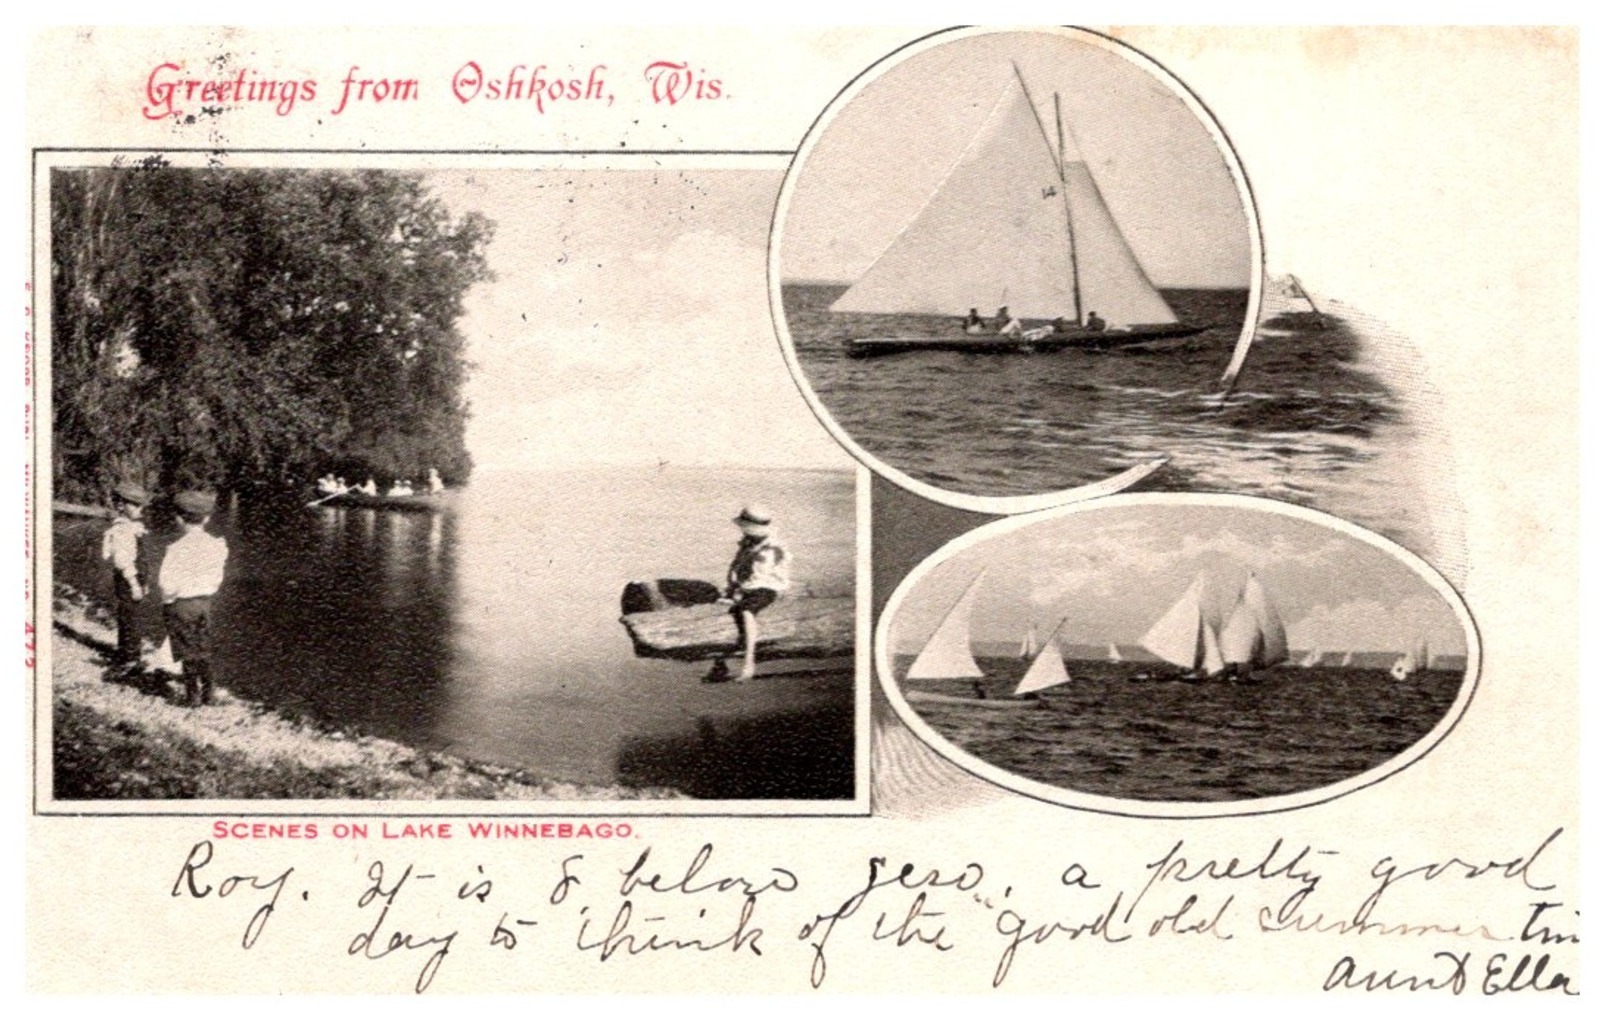 Greetings from Oshkosh, Wis.
14
SCENES ON LAKE WINNEBAGO.
Roy. It is 8 below zero, a pretty good
day to think of the "good old summer tim
Aunt Ella